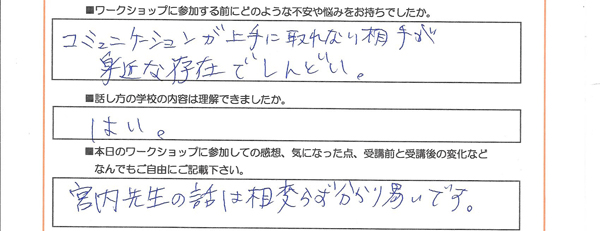 ■ワークショップに参加する前にどのような不安や悩みをお持ちでしたか。
コミュニケーションが上手に取れない相手が
身近な存在でしんどい。
■話し方の学校の内容は理解できましたか。
はい。
■本日のワークショップに参加しての感想、気になった点、受講前と受講後の変化など
なんでもご自由にご記載下さい。
宮内先生の話は相変らず分かり易いです。